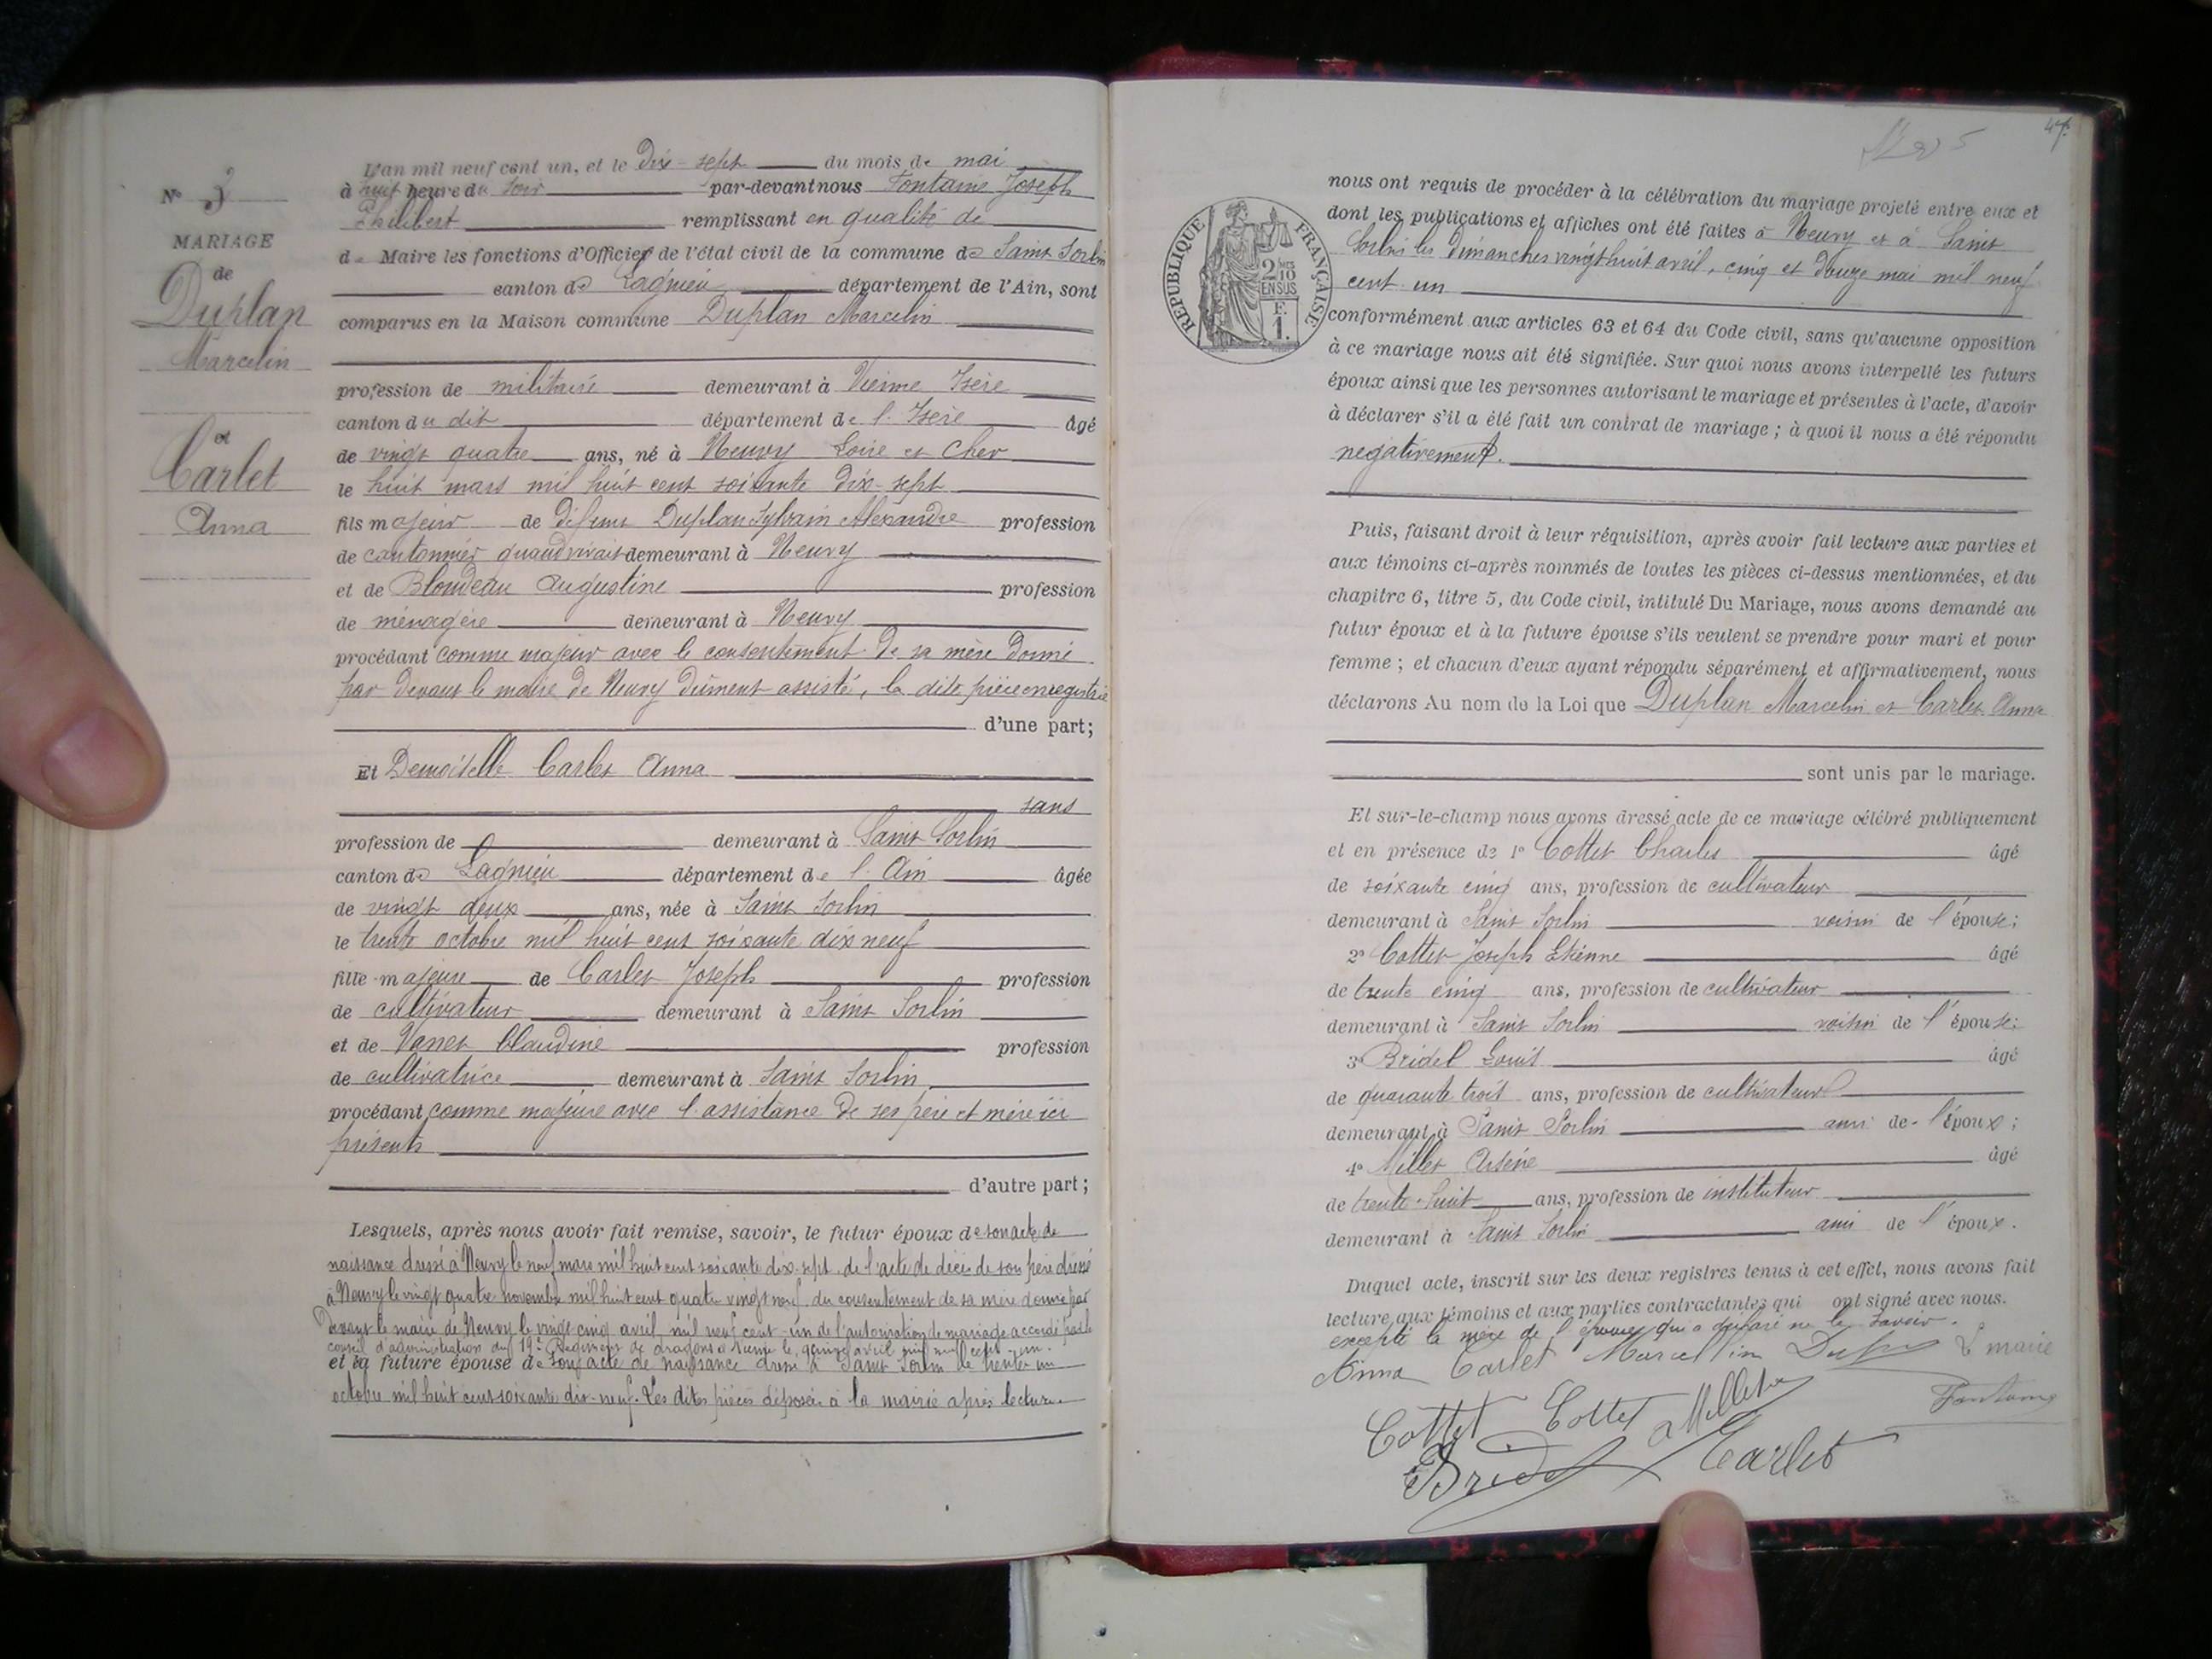 N° 3
MARIAGE
de
Duplan
Marcelin
et
Carlet
Anna
L'an mil neuf cent un, et le dix-sept du mois de mai
à huit heure du soir par-devant nous Fontaine Joseph
Philibert remplissant en qualité de
de Maire les fonctions d'Officier de l'état civil de la commune de Saint Sorlin
canton de Lagnieu département de l'Ain, sont
comparus en la Maison commune Duplan Marcelin
profession de militaire demeurant à Vienne Isère
canton du dit département de l'Isère âgé
de vingt quatre ans, né à Neuvy Loire et Cher
le huit mars mil huit cent soixante dix-sept
fils majeur de défunt Duplan Sylvain Alexandre profession
de cantonnier quand vivait demeurant à Neuvy
et de Blondeau Augustine profession
de ménagère demeurant à Neuvy
procédant comme majeur avec le consentement de sa mère donné
par devant le maire de Neuvy dûment assisté, la dite pièce enregistrée
d'une part;
Et Demoiselle Carlet Anna
sans
profession de demeurant à Saint Sorlin
canton de Lagnieu département de l'Ain âgée
de vingt deux ans, née à Saint Sorlin
le trente octobre mil huit cent soixante dix neuf
fille majeure de Carlet Joseph profession
de cultivateur demeurant à Saint Sorlin
et de Vanet Claudine profession
de cultivatrice demeurant à Saint Sorlin
procédant comme majeure avec l'assistance de ses père et mère ici
présents
d'autre part;
Lesquels, après nous avoir fait remise, savoir, le futur époux de son acte de
naissance dressé à Neuvy le neuf mars mil huit cent soixante dix-sept, de l'acte de décès de son père dressé
à Neuvy le vingt quatre novembre mil huit cent quatre vingt neuf, du consentement de sa mère donné par
devant le maire de Neuvy le vingt cinq avril, mil neuf cent un de l'autorisation de mariage accordé par le
conseil d'administration du 19e Régiment de dragons à Vienne le quinze avril mil neuf cent un.
et la future épouse de son acte de naissance dressé à Saint Sorlin le trente un
octobre mil huit cent soixante dix-neuf. Les dites pièces déposées à la mairie après lecture.
47
RÉPUBLIQUE FRANÇAISE
2 MES
10
EN SUS
F.
1.
nous ont requis de procéder à la célébration du mariage projeté entre eux et
dont les publications et affiches ont été faites à Neuvy et à Saint
Sorlin les dimanches vingt huit avril, cinq et douze mai mil neuf
cent un
conformément aux articles 63 et 64 du Code civil, sans qu'aucune opposition
à ce mariage nous ait été signifiée. Sur quoi nous avons interpellé les futurs
époux ainsi que les personnes autorisant le mariage et présentes à l'acte, d'avoir
à déclarer s'il a été fait un contrat de mariage; à quoi il nous a été répondu
négativement.
Puis, faisant droit à leur réquisition, après avoir fait lecture aux parties et
aux témoins ci-après nommés de toutes les pièces ci-dessus mentionnées, et du
chapitre 6, titre 5, du Code civil, intitulé Du Mariage, nous avons demandé au
futur époux et à la future épouse s'ils veulent se prendre pour mari et pour
femme; et chacun d'eux ayant répondu séparément et affirmativement, nous
déclarons Au nom de la Loi que Duplan Marcelin et Carlet Anna
sont unis par le mariage.
Et sur-le-champ nous avons dressé acte de ce mariage célébré publiquement
et en présence de 1° Cottet Charles âgé
de soixante cinq ans, profession de cultivateur
demeurant à Saint Sorlin voisin de l'épouse;
2° Cottet Joseph Etienne âgé
de trente cinq ans, profession de cultivateur
demeurant à Saint Sorlin voisin de l'épouse;
3° Bridel Louis âgé
de quarante trois ans, profession de cultivateur
demeurant à Saint Sorlin ami de l'époux;
4° Millet Arsène âgé
de trente-huit ans, profession de instituteur
demeurant à Saint Sorlin ami de l'époux.
Duquel acte, inscrit sur les deux registres tenus à cet effet, nous avons fait
lecture aux témoins et aux parties contractantes qui ont signé avec nous.
excepté la mère de l'épouse qui a déclaré ne le savoir.
Anna Carlet Marcelin Le maire
Cottet Cottet A Millet Fontaine
Bridel Carlet